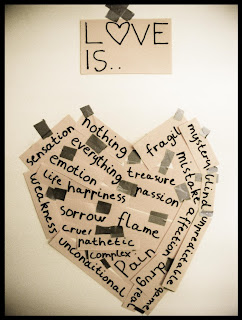 LOVE
IS..
nothing
sensation
everything
emotion
treasure
life
happiness
passion
weakness
sorrow
flame
cruel
pathetic
complex
unconditional
pain
fragil
mystery
blind
mistake
unpredictable
affection
drug
real
game